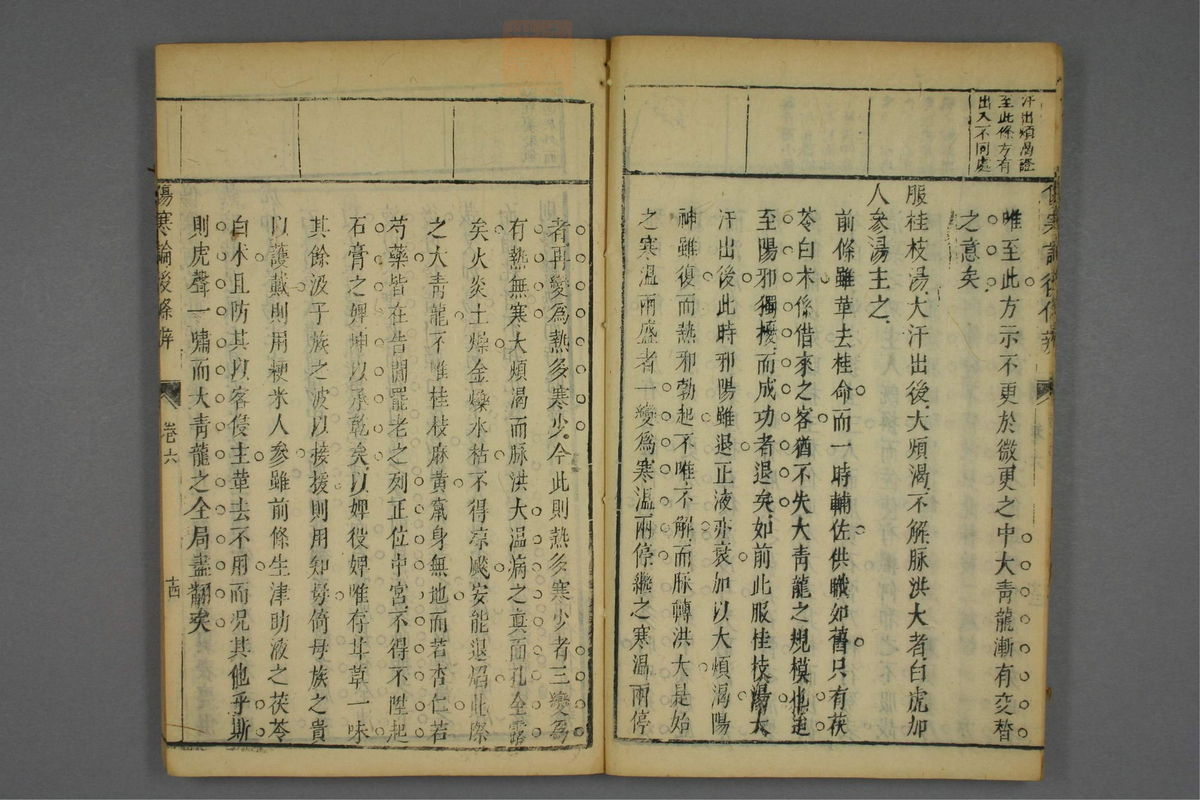 汗出煩渴證
至此條方有
出入不同處
唯至此方示不更於微更之中大青龍漸有交替
之意矣
服桂枝湯大汗出後大煩渴不解脈洪大者白虎加
人參湯主之
前條雖革去桂命而一時輔佐供職如舊只有茯
苓白朮係借來之客猶不失大青龍之規模也迨
至陽邪獨擾而成功者退矣如前此服桂枝湯大
汗出後此時邪陽雖退正液亦衰加以大煩渴陽
神雖復而熱邪勃起不唯不解而脈轉洪大是始
之寒溫兩盛者一變爲寒溫兩停繼之寒溫兩停
者再變爲熱多寒少今此則熱多寒少者三變爲
有熱無寒大煩渴而脈洪大溫病之真面孔全露
矣火炎土燥金爍水枯不得凉飈安能退焰此際
之大青龍不唯桂枝麻黃竄身無地而若杏仁若
芍藥皆在告閒罷老之列正位中宮不得不陞起
石膏之婢坤以承乾矣以婢役婢唯存甘草一味
其餘汲于族之波以接援則用知母倚母族之貴
以護戴則用粳米人參雖前條生津助液之茯苓
白朮且防其以客侵主革去不用而况其他乎斯
則虎聲一嘯而大青龍之全局盡翻矣
傷寒論後條辨
卷六
十四